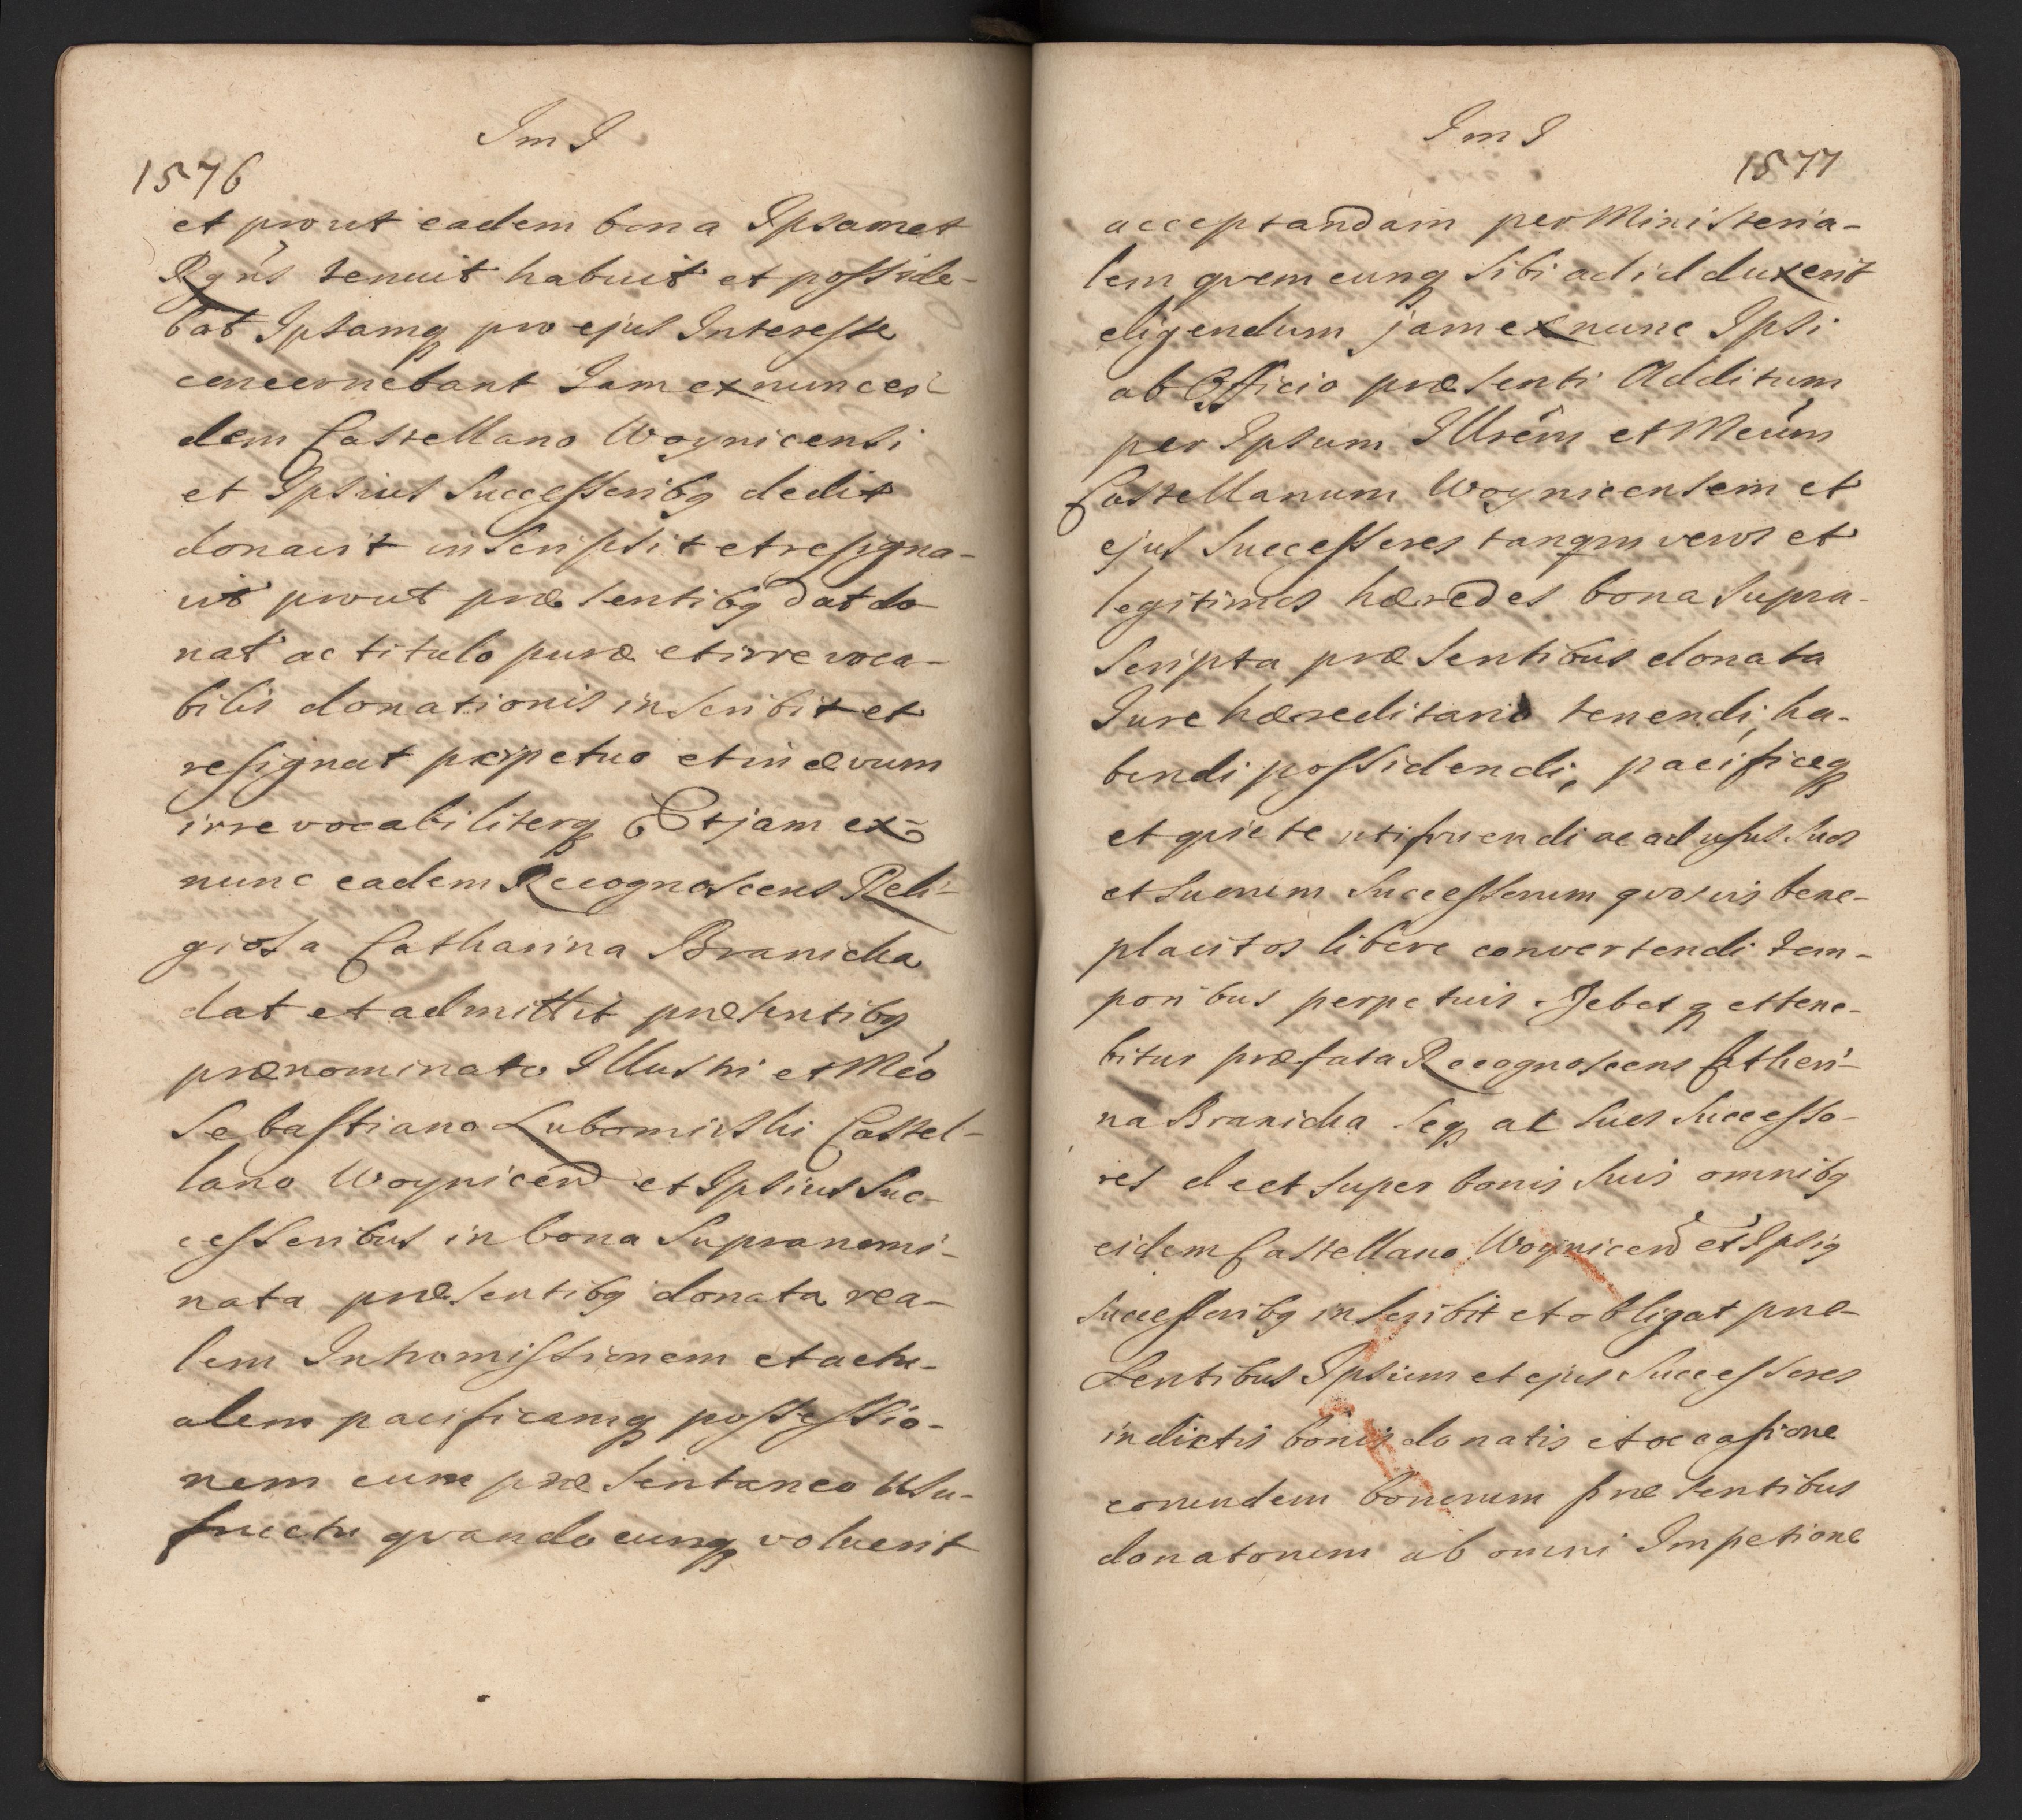 Im I
1576
et prout eadem bona Ipsamet
Rgn̄s tenuit habuit et posside-
bat Ipsamq pro ejus Interesse
concernebant Iam ex nunc ei-
dem Castellano Woynicensi
et Ipsius Successoribq dedit
donavit inscripsit et resigna-
vit prout præsentibq dat do
nat ac titulo puræ et irrevoca-
bilis donationis inscribit et
resignat perpetuo et in ævum
irrevocabiliterq Et jam ex-
nunc eadem Recognoscens Reli-
giosa Catharina Branicka
dat et admittit præsentibq
prænominato Illustri et Mco
Sebastiano Lubomirski Castel-
lano Woynicen et Ipsius Suc-
cessoribus in bona Supranomi-
nata præsentibq donata rea-
lem Intromissionem et actu-
alem pacificamq possessio-
nem cum præsentaneo Usu-
fructu qvandocunq voluerit
Im I
1577
acceptandam per Ministeria-
lem qvemcunq Sibi ad id duxerit
eligendum jam ex nunc Ipsi
ab Officio præsenti Additum
per Ipsum Illrem et Mcum
Castellanum Woynicensem et
ejus Successores tanqm veros et
legitimos hæredes bona Supra-
scripta præsentibus donata
Jure hæreditario tenendi, ha-
bendi possidendi, pacificeq
et qviete utifruendi ac ad usus Suos
et Suorum Successorum qvosvis bene-
placitos libere convertendi tem-
poribus perpetuis. Debet q et tene-
bitur præfata Recognoscens Catheri-
na Branicka Seq ac Suos Successo-
res de et Super bonis Suis omnibq
eidem Castellano Woynicen et Ipsiq
Successoribq inscribit et obligat præ-
sentibus Ipsum et ejus Successores
in dictis bonis donatis et occasione
eorundem bonorum præsentibus
donatorum ab omni Impetione